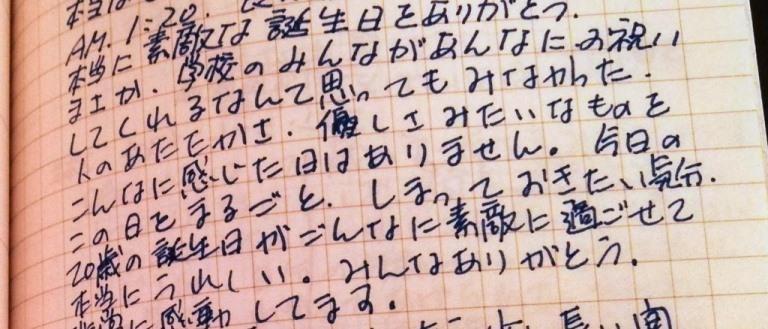 本当は
AM. 1:20.
本当に素敵な誕生日をありがとう.
まさか、学校のみんながあんなにお祝い
してくれるなんて思ってもみなかった.
人のあたたかさ. 優しさみたいなものを
こんなに感じた日はありません。今日の
この日をまるごと. しまっておきたい気分.
20歳の誕生日がこんなに素敵に過ごせて
本当にうれしい。みんなありがとう.
に感動してます。
長い間